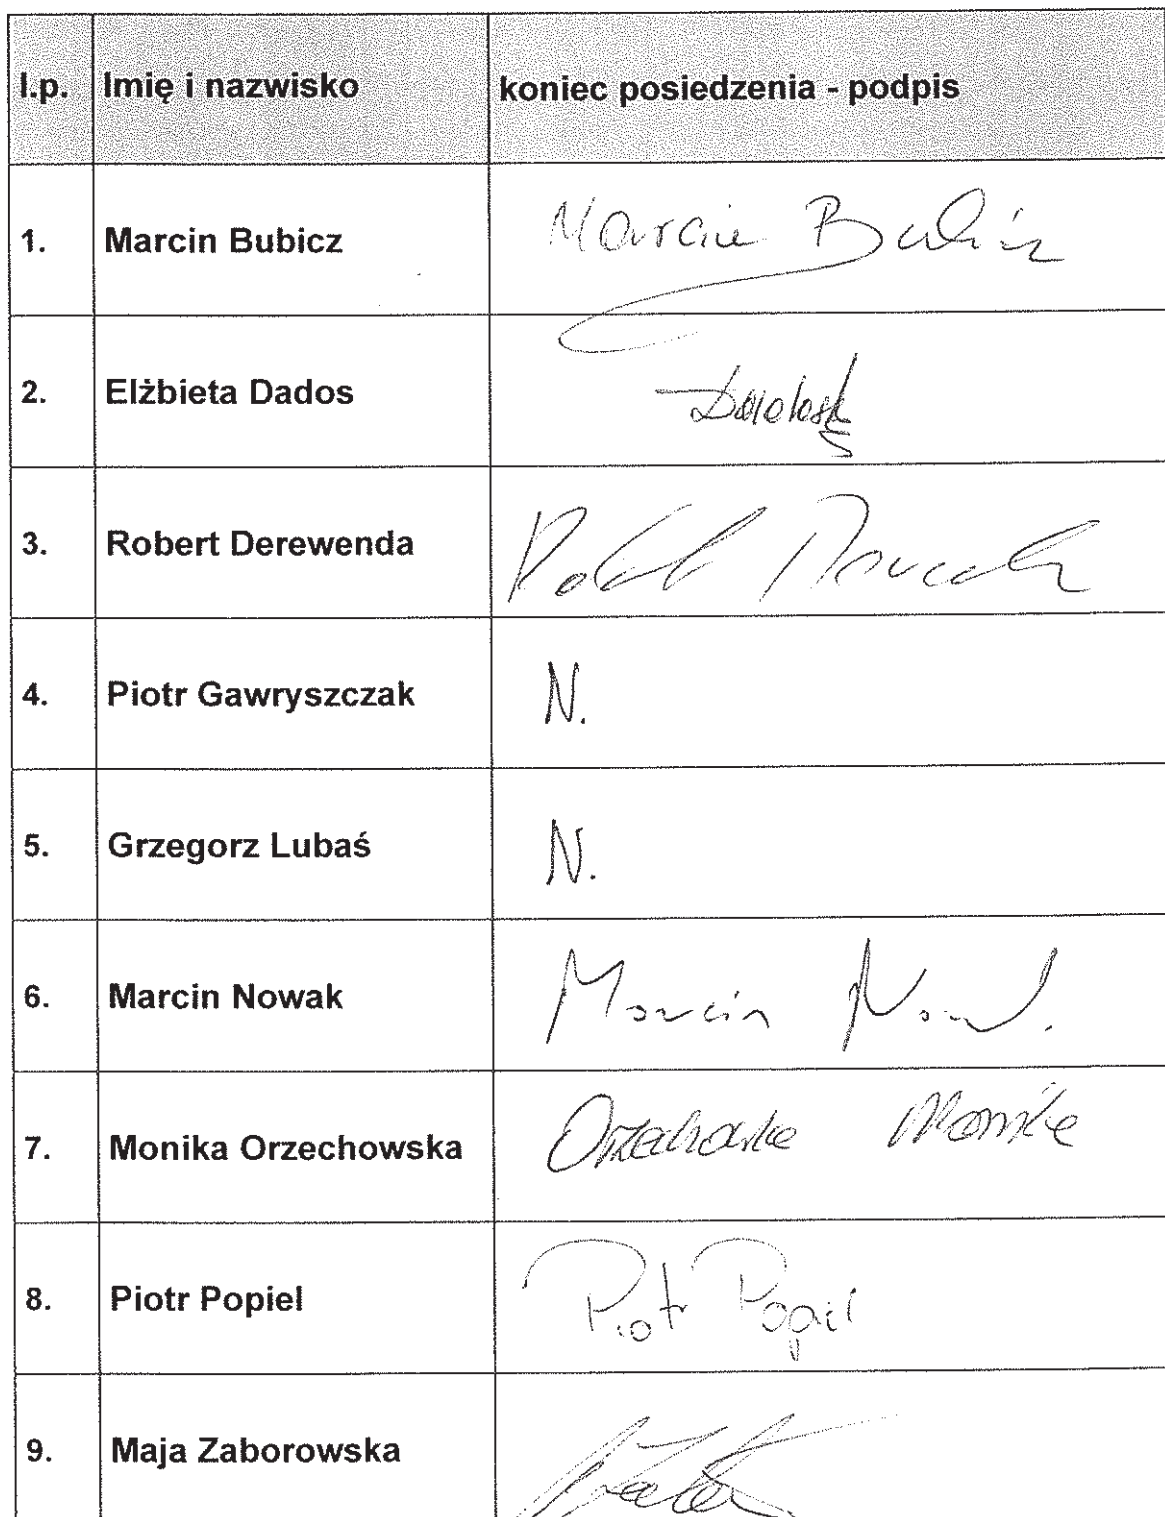 l.p. Imię i nazwisko koniec posiedzenia - podpis
1. Marcin Bubicz Marcin Bubicz
2. Elżbieta Dados
3. Robert Derewenda
4. Piotr Gawryszczak N.
5. Grzegorz Lubaś N.
6. Marcin Nowak Marcin
7. Monika Orzechowska Orzechowska Monika
8. Piotr Popiel Piotr Popiel
9. Maja Zaborowska